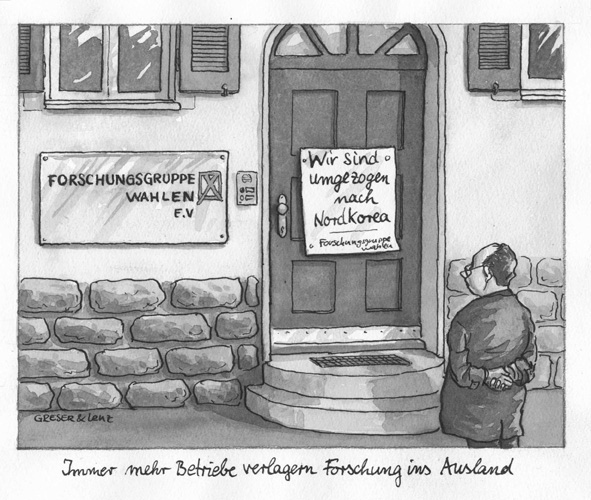 FORSCHUNGSGRUPPE
WAHLEN
E.V
Wir sind
umgezogen
nach
Nordkorea
Forschungsgruppe
wahlen
GRESER & LENZ
Immer mehr Betriebe verlagern Forschung ins Ausland